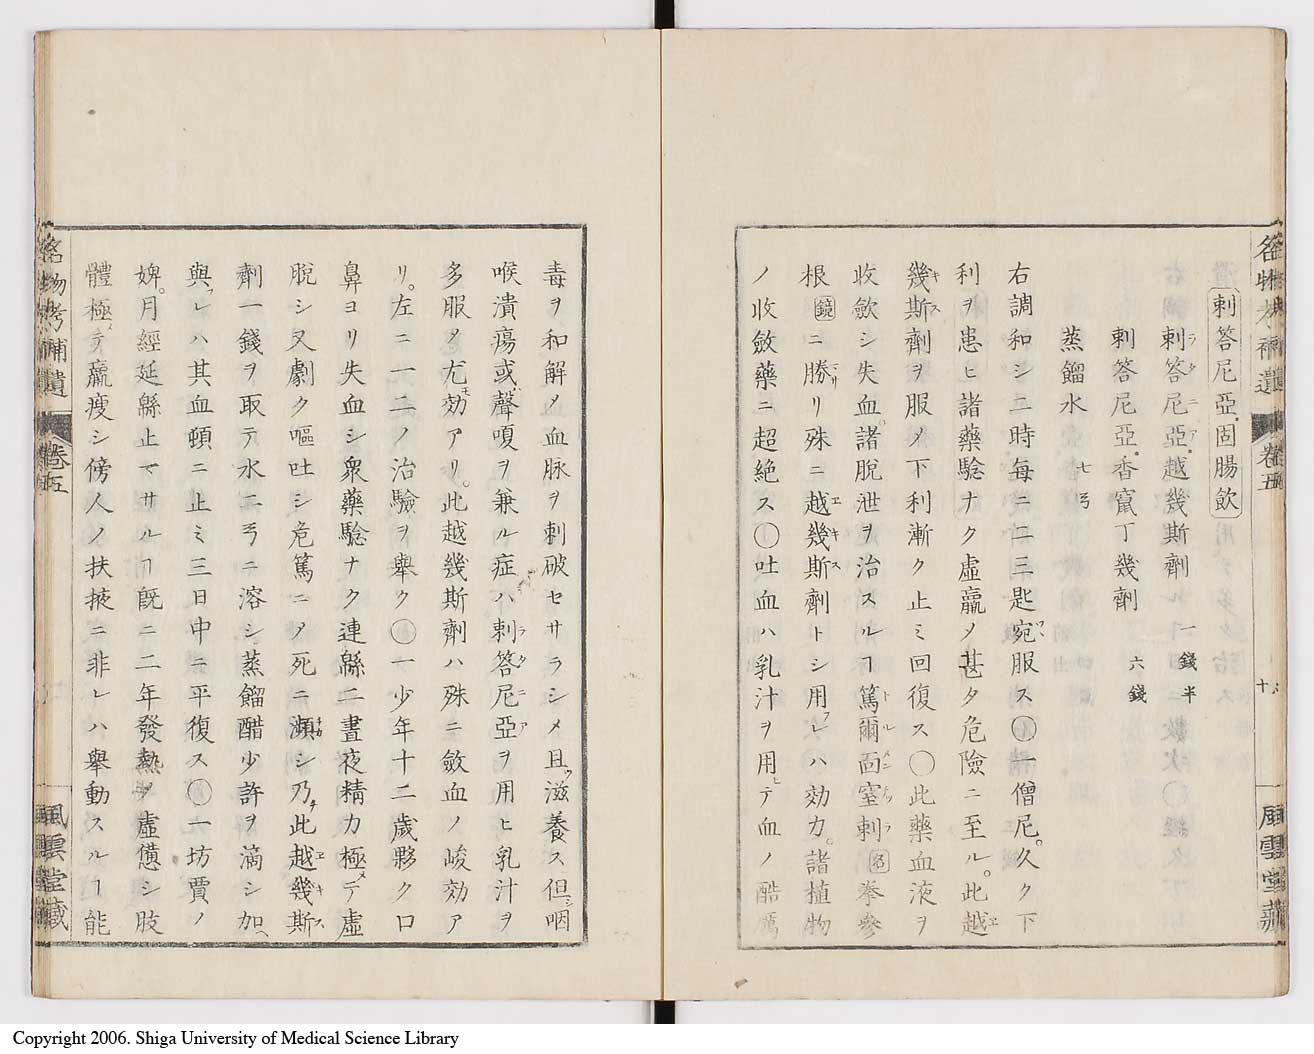 名物考補遺 卷五 十八 風雲堂藏
刺答尼亞固腸飲
刺答尼亞越幾斯劑 一錢半
刺答尼亞香竄丁幾劑 六錢
蒸餾水 七弓
右調和シ二時每ニ二三匙宛服ス〇一僧尼久ク下
利ヲ患ヒ諸藥驗ナク虛羸ノ甚タ危險ニ至ル此越
幾斯劑ヲ服ノ下利漸ク止ミ回復ス〇此藥血液ヲ
收歛シ失血諸脫泄ヲ治スルヿ篤爾面室刺名拳參
根鏡ニ勝リ殊ニ越幾斯劑トシ用レハ効力諸植物
ノ收斂藥ニ超絕ス〇吐血ハ乳汁ヲ用テ血ノ酷厲
毒ヲ和解ノ血脉ヲ刺破セサラシメ且滋養ス但咽
喉潰瘍或聲嗄ヲ兼ル症ハ刺答尼亞ヲ用ヒ乳汁ヲ
多服ノ尤効アリ此越幾斯劑ハ殊ニ斂血ノ峻効ア
リ左ニ一二ノ治驗ヲ舉ク〇一少年十二歲夥ク口
鼻ヨリ失血シ衆藥驗ナク連緜二晝夜精力極テ虛
脫シ又劇ク嘔吐シ危篤ニノ死ニ瀕シ乃此越幾斯
劑一錢ヲ取テ水二弓ニ溶シ蒸餾醋少許ヲ滴シ加
與レハ其血頓ニ止ミ三日中ニ平復ス〇一坊賈ノ
婢月經延緜止マサルヿ既ニ二年發熱ノ虛憊シ肢
體極テ羸瘦シ傍人ノ扶掖ニ非レハ舉動スルヿ能
名物考補遺 卷五 風雲堂藏
Copyright 2006. Shiga University of Medical Science Library